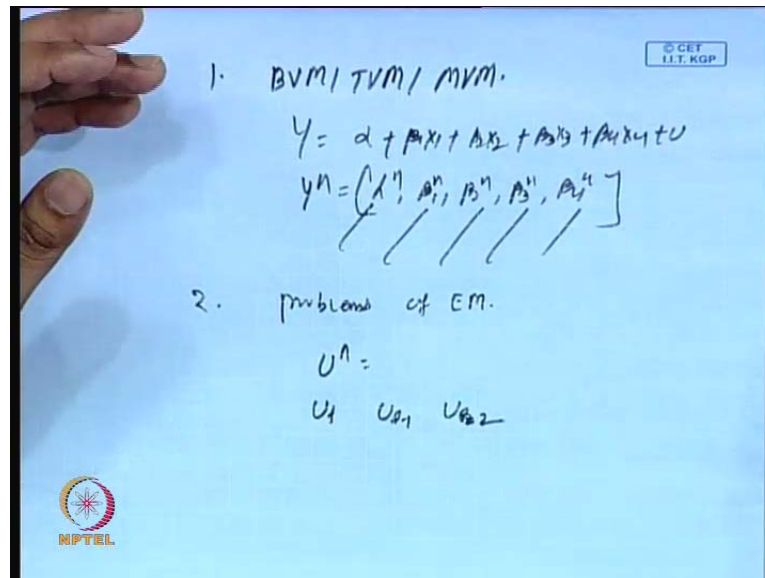 © CET
I.I.T. KGP
1. BVM/ TVM/ MVM.
Y = α + β1x1 + β2x2 + β3x3 + β4x4 + U
y^ = (α^, β1^, β^, β3^, β4^]
2. problems of EM.
U^ =
U1
NPTEL